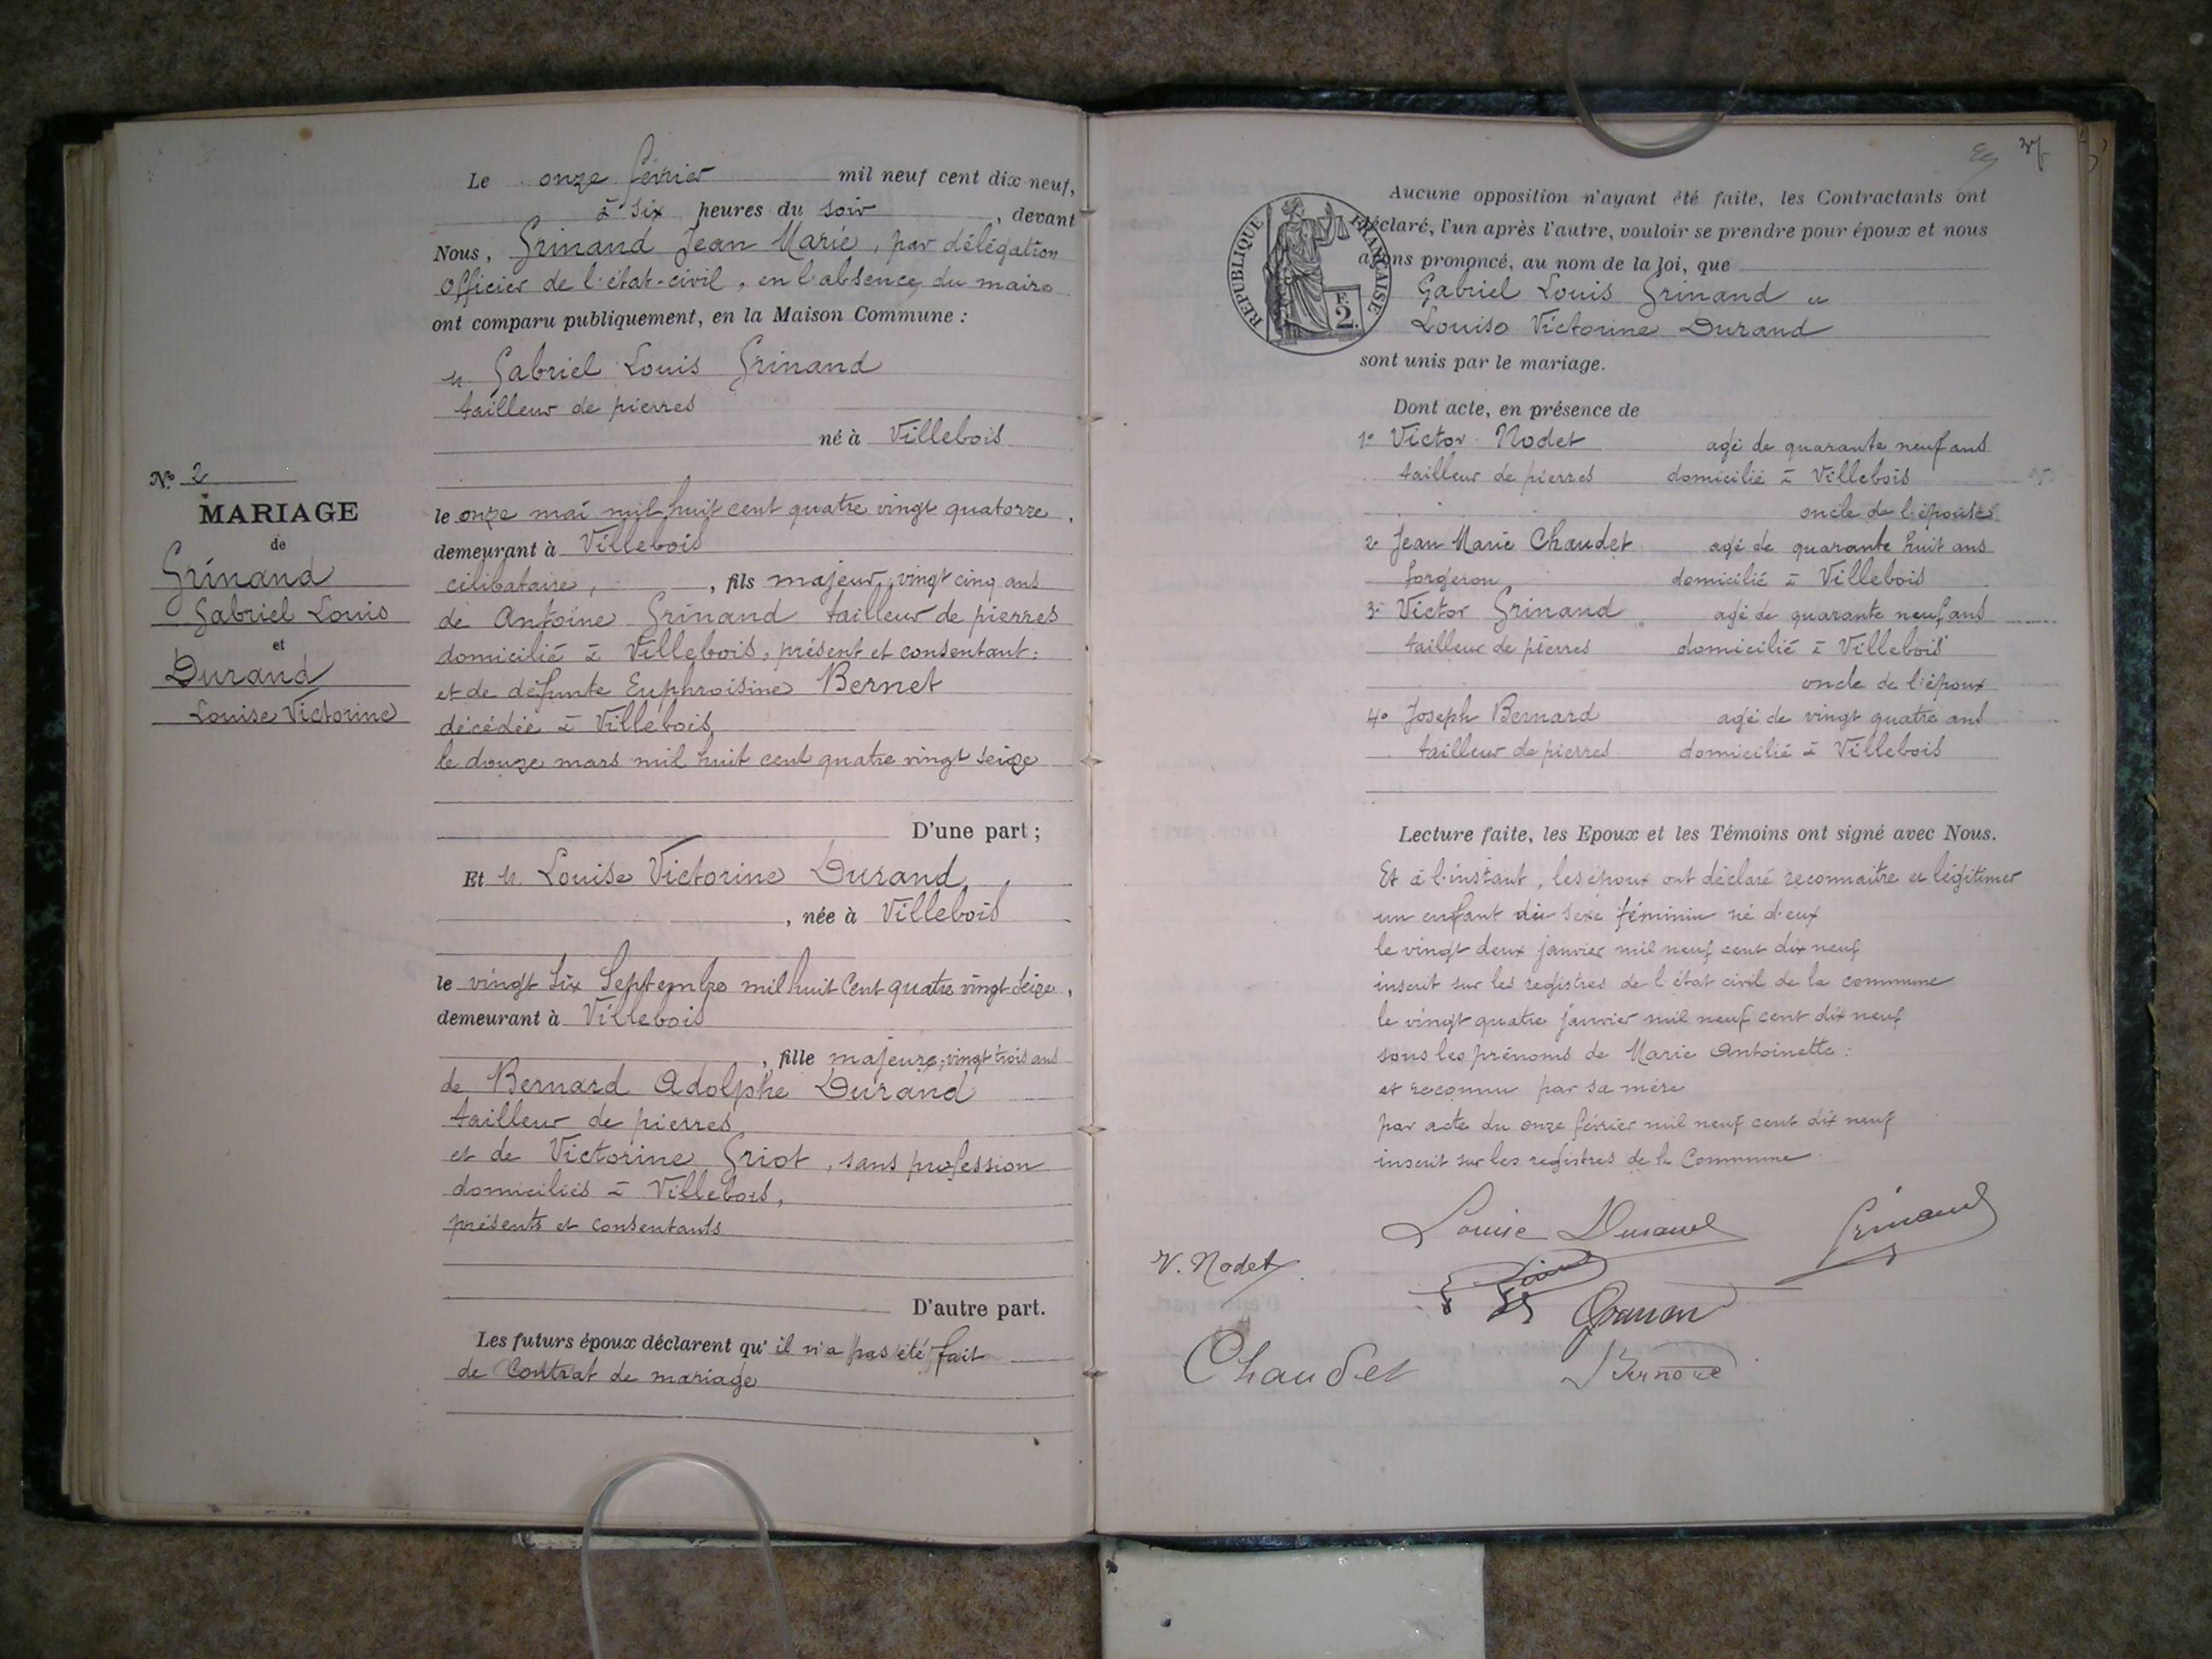 Le onze février mil neuf cent dix neuf,
à six heures du soir, devant
Nous, Grinand Jean Marie, par délégation
Officier de l'état-civil, en l'absence du maire
ont comparu publiquement, en la Maison Commune :
M. Gabriel Louis Grinand
tailleur de pierres
né à Villebois
le onze mai mil huit cent quatre vingt quatorze,
demeurant à Villebois
célibataire, , fils majeur, vingt cinq ans
de Antoine Grinand tailleur de pierres
domicilié à Villebois, présent et consentant :
et de défunte Euphroisine Bernet
décédée à Villebois
le douze mars mil huit cent quatre vingt seize
D'une part ;
Et M. Louise Victorine Durand
, née à Villebois
le vingt six Septembre mil huit Cent quatre vingt seize,
demeurant à Villebois
, fille majeure, vingt trois ans
de Bernard Adolphe Durand
tailleur de pierres
et de Victorine Griot, sans profession
domiciliés à Villebois,
présents et consentants
D'autre part.
Les futurs époux déclarent qu'il n'a pas été fait
de Contrat de mariage
N° 2
MARIAGE
de
Grinand
Gabriel Louis
et
Durand
Louise Victorine
Aucune opposition n'ayant été faite, les Contractants ont
déclaré, l'un après l'autre, vouloir se prendre pour époux et nous
avons prononcé, au nom de la loi, que
Gabriel Louis Grinand et
Louise Victorine Durand
sont unis par le mariage.
REPUBLIQUE FRANÇAISE
F.
2.
Dont acte, en présence de
1° Victor Nodet agé de quarante neuf ans
tailleur de pierres domicilié à Villebois
oncle de l'épouse
2° Jean Marie Chaudet agé de quarante huit ans
forgeron domicilié à Villebois
3° Victor Grinand agé de quarante neuf ans
tailleur de pierres domicilié à Villebois
oncle de l'époux
4° Joseph Bernard agé de vingt quatre ans
tailleur de pierres domicilié à Villebois
Lecture faite, les Epoux et les Témoins ont signé avec Nous.
Et à l'instant, les époux ont déclaré reconnaitre et légitimer
un enfant du sexe féminin né d'eux
le vingt deux janvier mil neuf cent dix neuf
inscrit sur les registres de l'état civil de la commune
le vingt quatre janvier mil neuf cent dix neuf
sous les prénoms de Marie Antoinette :
et reconnu par sa mère
par acte du onze février mil neuf cent dix neuf
inscrit sur les registres de la Commune
Louise Durand Grinand
V. Nodet
Chaudet